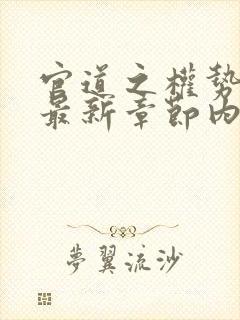 官道之權勢
最新章節內
夢翼流沙